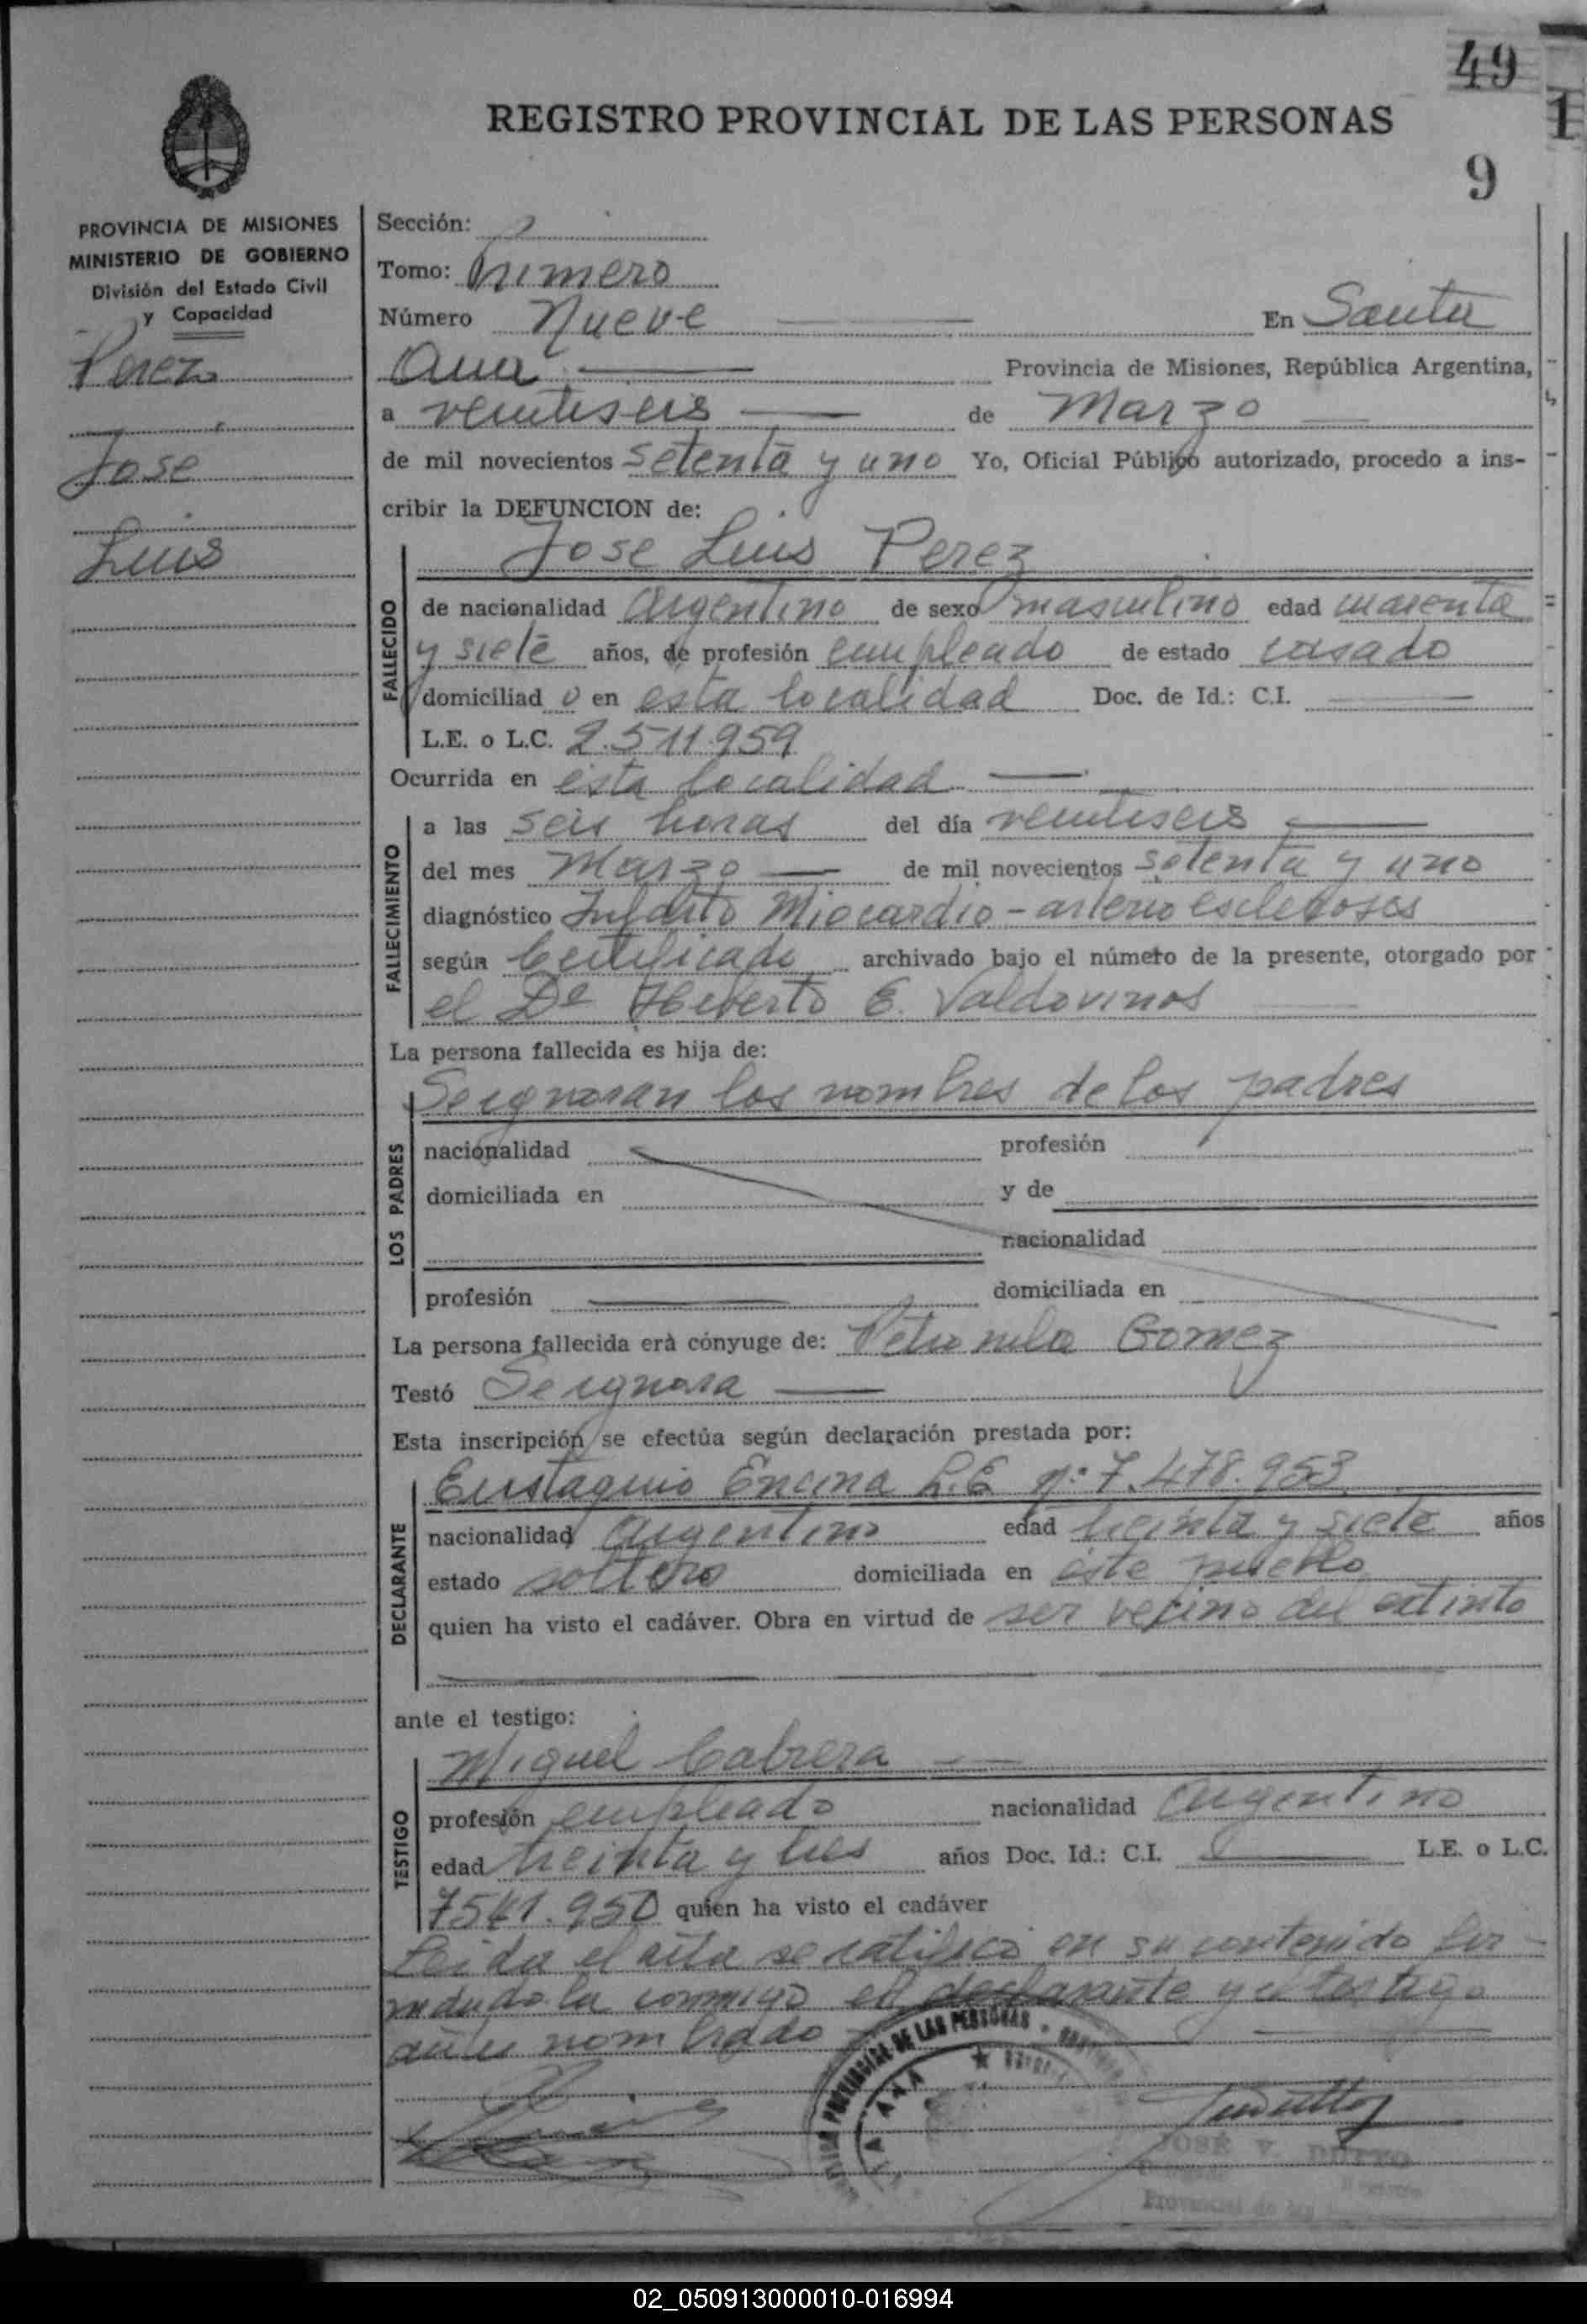 49
1
REGISTRO PROVINCIAL DE LAS PERSONAS
9
PROVINCIA DE MISIONES
MINISTERIO DE GOBIERNO
División del Estado Civil
y Capacidad
Perez
Jose
Luis
Sección:
Tomo: Primero
Número Nueve En Santa
Ana Provincia de Misiones, República Argentina,
a veintiseis de Marzo
de mil novecientos setenta y uno Yo, Oficial Público autorizado, procedo a ins-
cribir la DEFUNCION de:
Jose Luis Perez
FALLECIDO
de nacionalidad Argentino de sexo masculino edad cuarenta
y siete años, de profesión empleado de estado casado
domiciliad o en esta localidad Doc. de Id.: C.I.
L.E. o L.C. 2.511.959
Ocurrida en esta localidad
FALLECIMIENTO
a las seis horas del día veintiseis
del mes Marzo de mil novecientos setenta y uno
diagnóstico Infarto Miocardio - arterioesclerosis
según Certificado archivado bajo el número de la presente, otorgado por
el Dr Heberto E. Valdovinos
La persona fallecida es hija de:
Se ignoran los nombres de los padres
LOS PADRES
nacionalidad profesión
domiciliada en y de
nacionalidad
profesión domiciliada en
La persona fallecida erà cónyuge de: Petronila Gomez
Testó Se ignora
Esta inscripción se efectúa según declaración prestada por:
Eustaquio Encina L.E nº 7.478.953
DECLARANTE
nacionalidad Argentino edad treinta y siete años
estado soltero domiciliada en este pueblo
quien ha visto el cadáver. Obra en virtud de ser vecino del extinto
ante el testigo:
Miguel Cabrera
TESTIGO
profesión empleado nacionalidad Argentino
edad treinta y tres años Doc. Id.: C.I. L.E. o L.C.
7541.950 quien ha visto el cadáver
Leida el acta se ratifico en su contenido fir-
mandola conmigo el declarante y el testigo
antes nombrado
DE LAS PERSONAS
JOSÉ V. DUTTO
Provincial de las
02_050913000010-016994